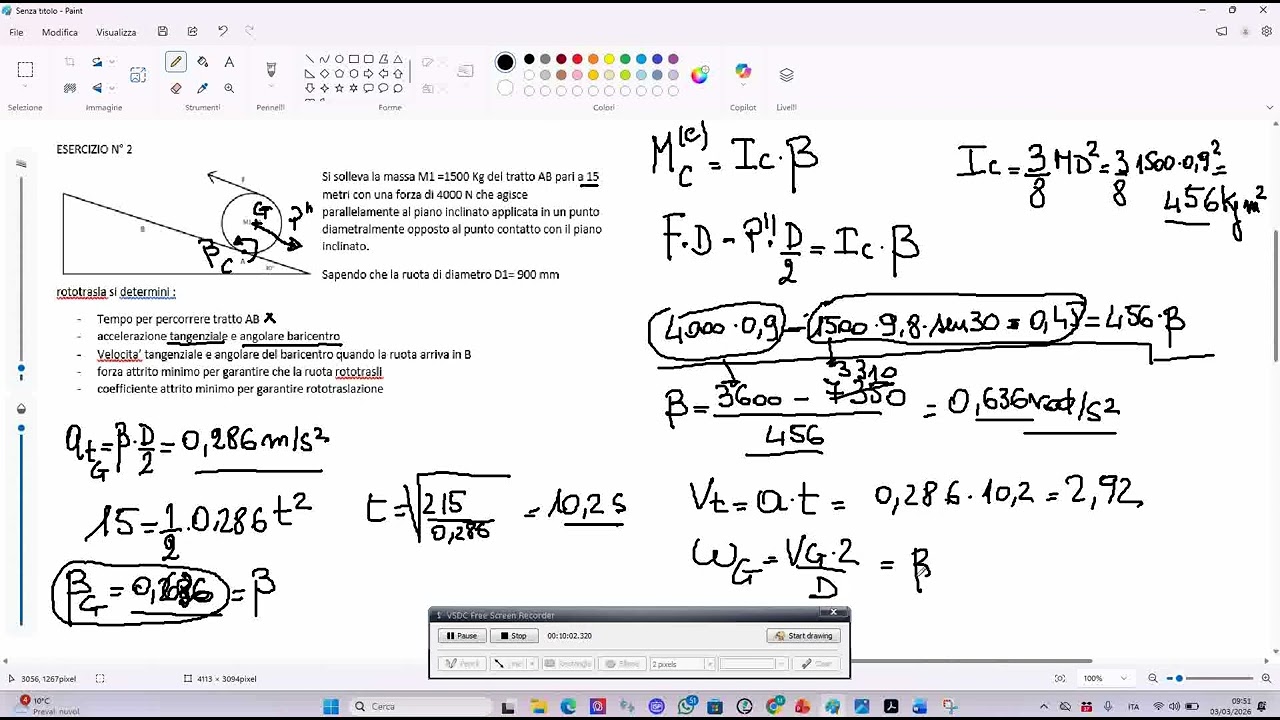 Senza titolo - Paint
File Modifica Visualizza
Selezione Immagine Strumenti Pennelli Forme Colori Copilot Livelli
ESERCIZIO N° 2
Si solleva la massa M1 =1500 Kg del tratto AB pari a 15
metri con una forza di 4000 N che agisce
parallelamente al piano inclinato applicata in un punto
diametralmente opposto al punto contatto con il piano
inclinato.
Sapendo che la ruota di diametro D1= 900 mm
rototrasla si determini :
- Tempo per percorrere tratto AB x
- accelerazione tangenziale e angolare baricentro
- Velocita' tangenziale e angolare del baricentro quando la ruota arriva in B
- forza attrito minimo per garantire che la ruota rototrasli
- coefficiente attrito minimo per garantire rototraslazione
F
G
M1
P"
B
β
C
A
30°
M_C^(e) = Ic · β
Ic = 3/8 MD² = 3/8 1500·0,9² =
456 kg m²
F·D - P"· D/2 = Ic · β
4000·0,9 - 1500·9,8·sen30 = 0,45 = 456·β
3310
β = 3600 - 7350 / 456 = 0,636 rad/s²
a_tG = β · D/2 = 0,286 m/s²
15 = 1/2 · 0,286 t²
t = √ 215 / 0,286 = 10,2 s
Vt = a·t = 0,286·10,2 = 2,92
β_G = = β
ω_G = VG·2 / D = β
VSDC Free Screen Recorder
Pause Stop 00:10:02.320 Start drawing
2 pixels Clear
3056, 1267pixel 4113 × 3094pixel 100%
4 10°C
Preval. nuvol.
Cerca
51
ITA
09:51
03/03/2026